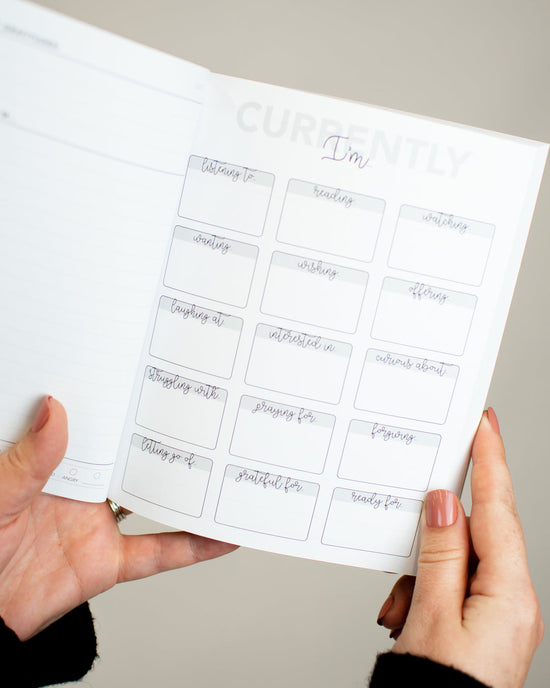 CURRENTLY
I'm
listening to
reading
watching
wanting
wishing
offering
laughing at
interested in
curious about
struggling with
praying for
forgiving
letting go of
grateful for
ready for
ANGRY